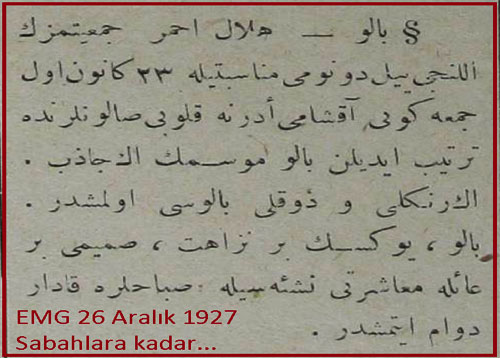 § بالو — هلال احمر جمعیتمزك
اللنجی ییل دونومی مناسبتیله ٢٣ كانون اول
جمعه كونی آقشامی أدرنه قلوبی صالونلرنده
ترتیب ایدیلن بالو موسمك اك جاذب .
اك رنكلی و ذوقلی بالوسی اولمشدر .
بالو ، یوكسك بر نزاهت ، صمیمی بر
عائله معاشرتی نشئه سیله صباحلره قادار
دوام ایتمشدر .
EMG 26 Aralık 1927
Sabahlara kadar...